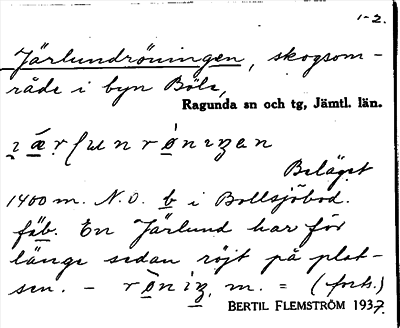 1-2.
Järlundröningen, skogsom-
råde i byn Böle,
Ragunda sn och tg, Jämtl. län.
Beläget
1400 m. N.O. b i Bollsjöbod.
fäb. En Järlund har för
länge sedan röjt på plat-
sen. - m. = (forts.)
BERTIL FLEMSTRÖM 1937.